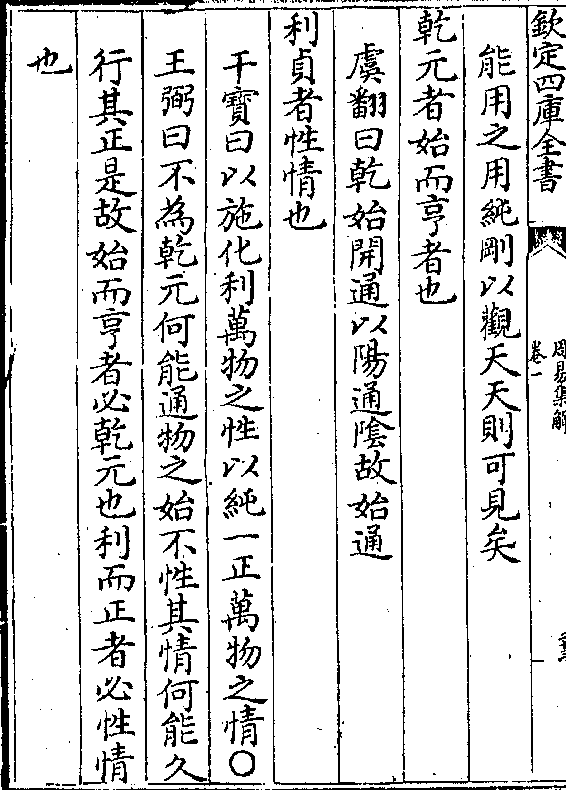 欽定四庫全書
周易集解
卷一
能用之用純剛以觀天天則可見矣
乾元者始而亨者也
虞翻曰乾始開通以陽通陰故始通
利貞者性情也
干寶曰以施化利萬物之性以純一正萬物之情〇
王弼曰不為乾元何能通物之始不性其情何能久
行其正是故始而亨者必乾元也利而正者必性情
也